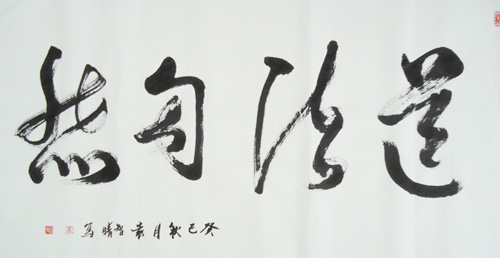 道法自然
癸巳秋月袁智晴写